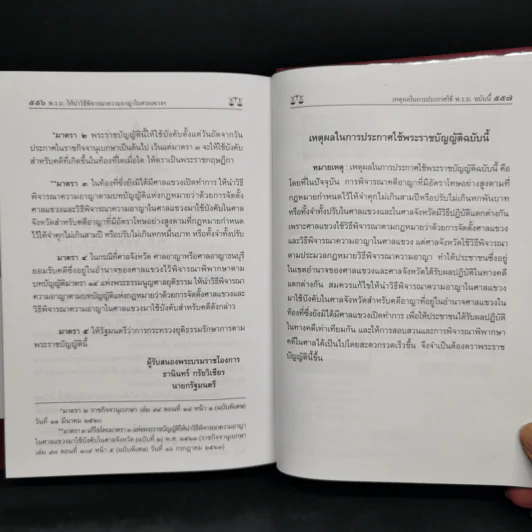 ๕๕๖ พ.ร.บ. ให้นำวิธีพิจารณาความอาญาในศาลแขวงฯ
"มาตรา ๒ พระราชบัญญัตินี้ให้ใช้บังคับตั้งแต่วันถัดจากวัน
ประกาศในราชกิจจานุเบกษาเป็นต้นไป เว้นแต่มาตรา ๓ จะให้ใช้บังคับ
สำหรับคดีที่เกิดขึ้นในท้องที่ใดเมื่อใด ให้ตราเป็นพระราชกฤษฎีกา
"มาตรา ๓ ในท้องที่ซึ่งยังมิได้มีศาลแขวงเปิดทำการ ให้นำวิธี
พิจารณาความอาญาตามบทบัญญัติแห่งกฎหมายว่าด้วยการจัดตั้ง
ศาลแขวงและวิธีพิจารณาความอาญาในศาลแขวงมาใช้บังคับในศาล
จังหวัดด้วยสำหรับคดีอาญาที่มีอัตราโทษอย่างสูงตามที่กฎหมายกำหนด
ไว้ให้จำคุกไม่เกินสามปี หรือปรับไม่เกินหกหมื่นบาท หรือทั้งจำทั้งปรับ
มาตรา ๔ ในกรณีที่ศาลจังหวัด ศาลอาญาหรือศาลอาญาธนบุรี
ยอมรับคดีซึ่งอยู่ในอำนาจของศาลแขวงไว้พิจารณาพิพากษาตาม
บทบัญญัติมาตรา ๑๔ แห่งพระธรรมนูญศาลยุติธรรม ให้นำวิธีพิจารณา
ความอาญาตามบทบัญญัติแห่งกฎหมายว่าด้วยการจัดตั้งศาลแขวงและ
วิธีพิจารณาความอาญาในศาลแขวงมาใช้บังคับสำหรับคดีดังกล่าว
มาตรา ๕ ให้รัฐมนตรีว่าการกระทรวงยุติธรรมรักษาการตาม
พระราชบัญญัตินี้
ผู้รับสนองพระบรมราชโองการ
ธานินทร์ กรัยวิเชียร
นายกรัฐมนตรี
"มาตรา ๒ ราชกิจจานุเบกษา เล่ม ๙๔ ตอนที่ ๑๘ หน้า ๑ (ฉบับพิเศษ)
วันที่ ๑๑ มีนาคม ๒๕๒๐
"มาตรา ๓ แก้ไขโดยมาตรา ๓ แห่งพระราชบัญญัติให้นำวิธีพิจารณาความอาญา
ในศาลแขวงมาใช้บังคับในศาลจังหวัด (ฉบับที่ ๒) พ.ศ. ๒๕๒๓ (ราชกิจจานุเบกษา
เล่ม ๙๗ ตอนที่ ๑๐๙ หน้า ๕ (ฉบับพิเศษ) วันที่ ๑๖ กรกฎาคม ๒๕๒๓)
เหตุผลในการประกาศใช้ พ.ร.บ. ฉบับนี้ ๕๕๗
เหตุผลในการประกาศใช้พระราชบัญญัติฉบับนี้
หมายเหตุ : เหตุผลในการประกาศใช้พระราชบัญญัติฉบับนี้ คือ
โดยที่ในปัจจุบัน การพิจารณาคดีอาญาที่มีอัตราโทษอย่างสูงตามที่
กฎหมายกำหนดไว้ให้จำคุกไม่เกินสามปีหรือปรับไม่เกินหกพันบาท
หรือทั้งจำทั้งปรับในศาลแขวงและในศาลจังหวัดมีวิธีปฏิบัติแตกต่างกัน
เพราะศาลแขวงใช้วิธีพิจารณาตามกฎหมายว่าด้วยการจัดตั้งศาลแขวง
และวิธีพิจารณาความอาญาในศาลแขวง แต่ศาลจังหวัดใช้วิธีพิจารณา
ตามประมวลกฎหมายวิธีพิจารณาความอาญา ทำให้ประชาชนซึ่งอยู่
ในเขตอำนาจของศาลแขวงและศาลจังหวัดได้รับผลปฏิบัติในทางคดี
แตกต่างกัน สมควรแก้ไขให้นำวิธีพิจารณาความอาญาในศาลแขวง
มาใช้บังคับในศาลจังหวัดสำหรับคดีอาญาที่อยู่ในอำนาจศาลแขวงใน
ท้องที่ซึ่งยังมิได้มีศาลแขวงเปิดทำการ เพื่อให้ประชาชนได้รับผลปฏิบัติ
ในทางคดีเท่าเทียมกัน และให้การสอบสวนและการพิจารณาพิพากษา
คดีในศาลได้เป็นไปโดยสะดวกรวดเร็วขึ้น จึงจำเป็นต้องตราพระราช
บัญญัตินี้ขึ้น